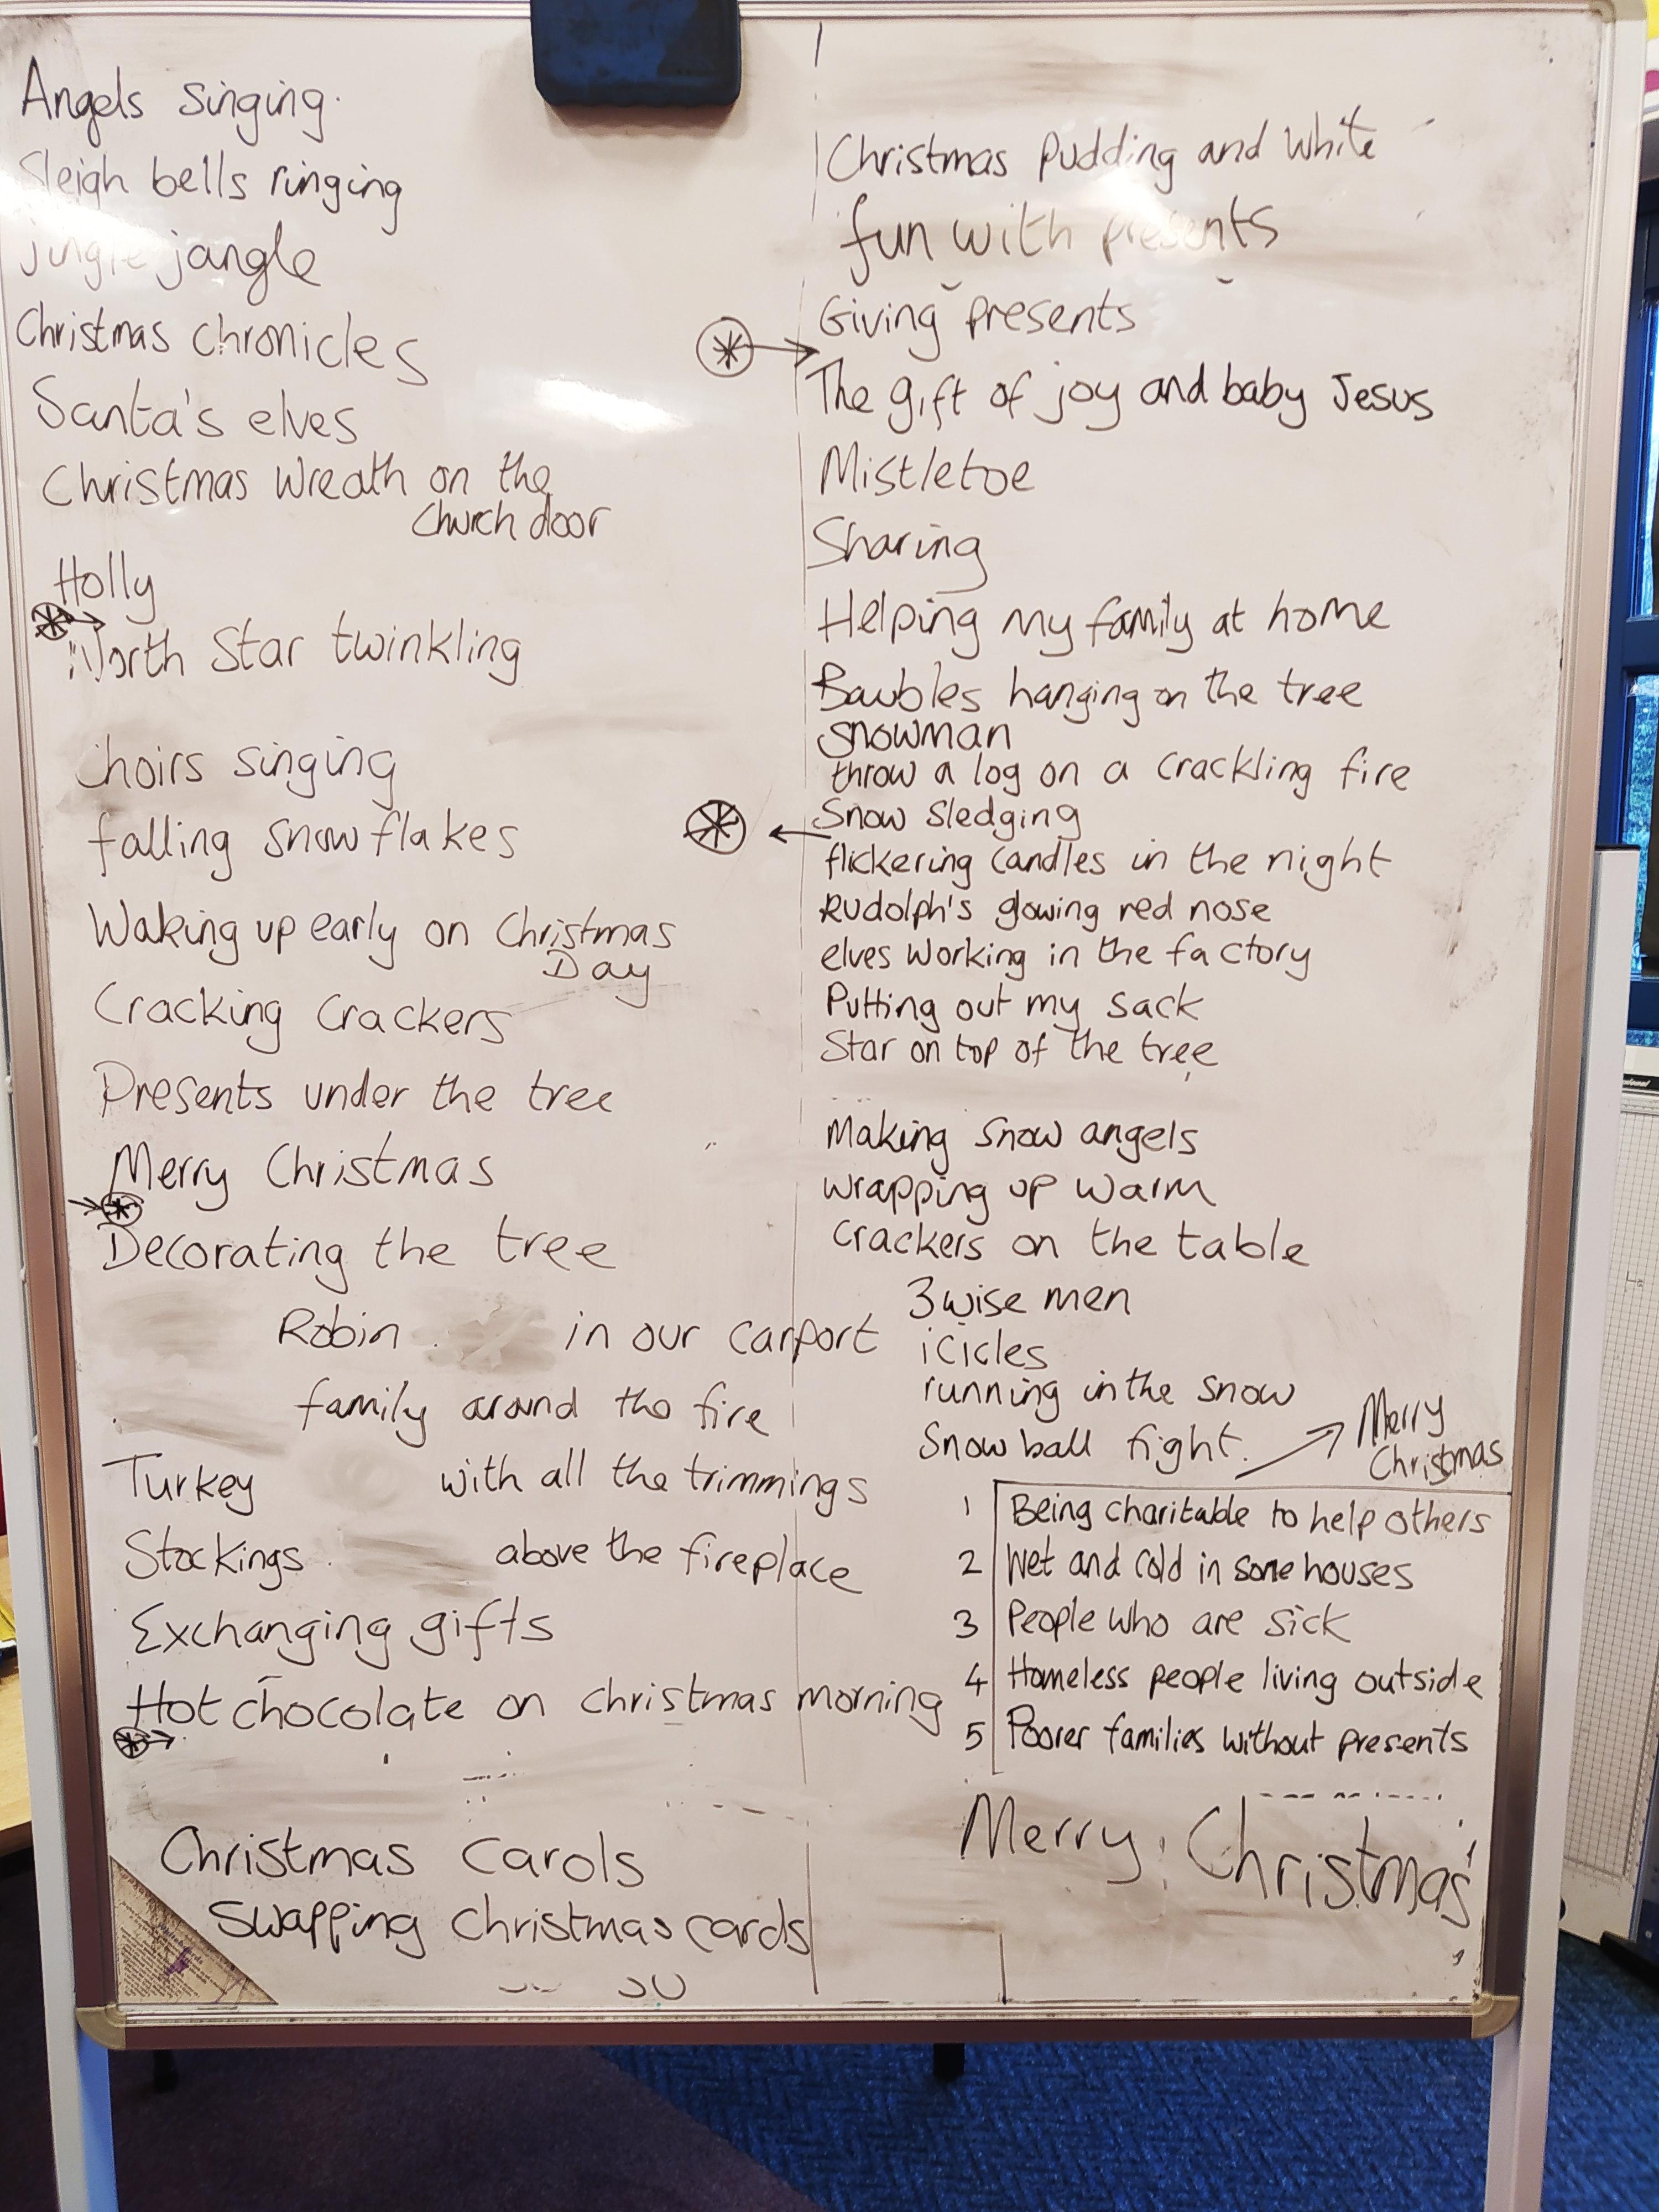 Angels singing.
Sleigh bells ringing
jingle jangle
Christmas chronicles
Santa's elves
Christmas Wreath on the
Church door
Holly
North Star twinkling
Choirs singing
falling snowflakes
Waking up early on Christmas
Day
Cracking Crackers
Presents under the tree
Merry Christmas
Decorating the tree
Robin in our carport
family around the fire
Turkey with all the trimmings
Stockings above the fireplace
Exchanging gifts
Hot chocolate on christmas morning
Christmas Carols
Swapping christmas cards
Christmas pudding and white
fun with presents
Giving presents
The gift of joy and baby Jesus
Mistletoe
Sharing
Helping my family at home
Baubles hanging on the tree
snowman
throw a log on a crackling fire
Snow sledging
flickering candles in the night
Rudolph's glowing red nose
elves working in the factory
Putting out my sack
Star on top of the tree
Making snow angels
wrapping up warm
crackers on the table
3 wise men
icicles
running in the snow
Snow ball fight.
Merry
Christmas
1 Being charitable to help others
2 Wet and cold in some houses
3 People who are sick
4 Homeless people living outside
5 Poorer families without presents
Merry Christmas